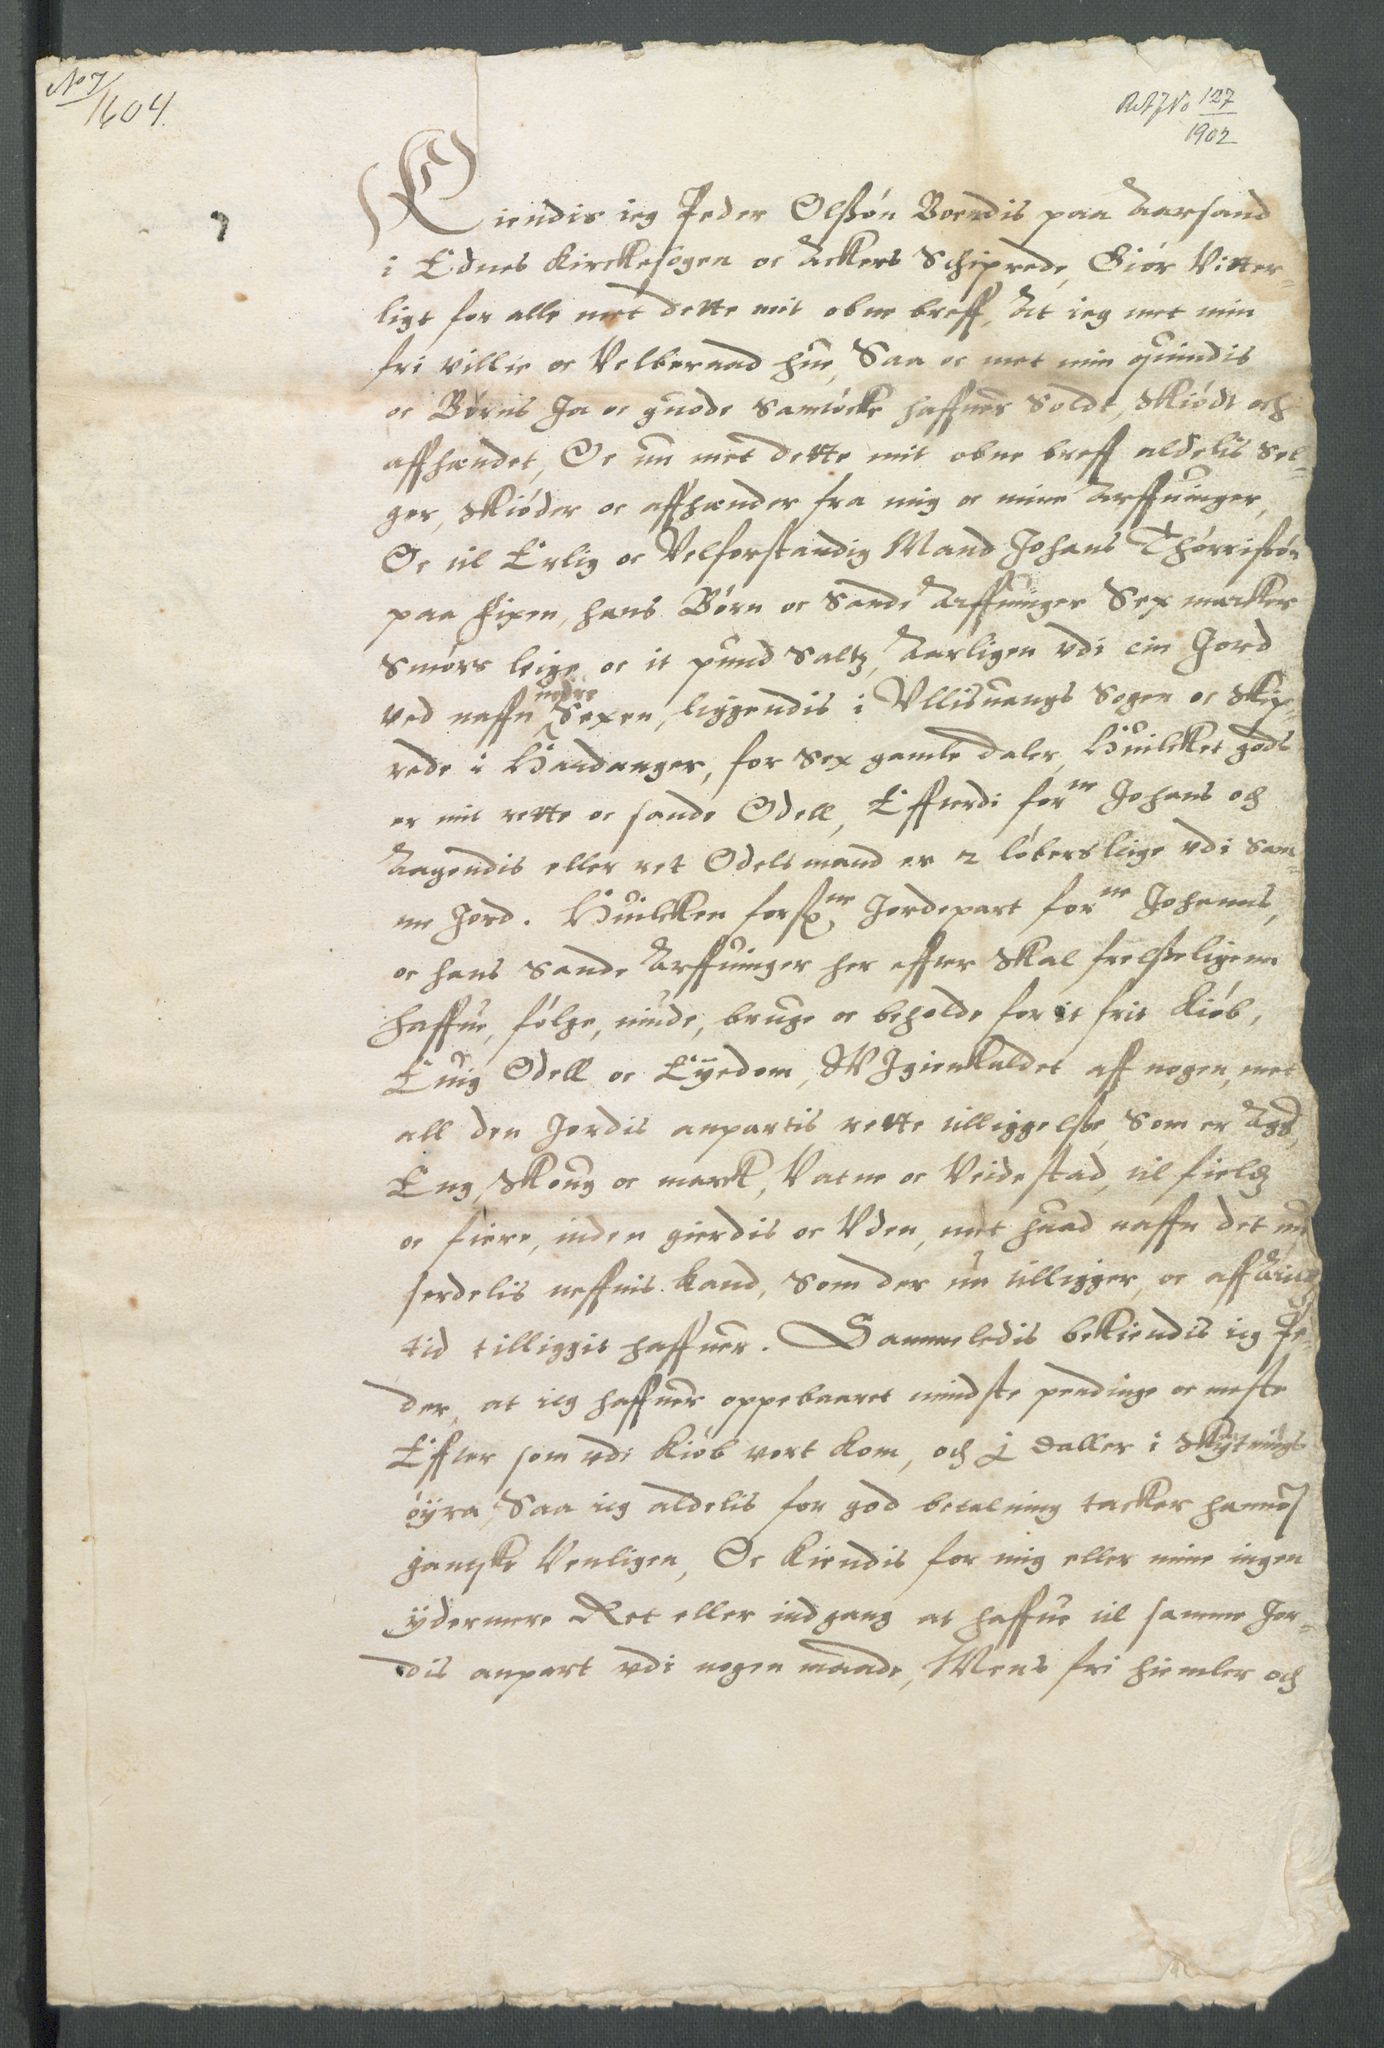 No 7/1604.
RAJNo 127/1902
Kiendis ieg Peder Olßøn Boendis paa Aarsand
i Ednes Kirckesogen oc Ackers Schiprede, Giør Vitter-
ligt for alle met dette mit obne breff, At ieg met min
fri villie oc Velberaad hue, Saa oc met min quindis
oc Børns Ja oc guode Samtöcke haffuer Soldt, Skiødt och
affhændet, Oc nu met dette mit obne breff aldelis Sel-
ger, Skiøder oc affhænder fra mig oc mine Arffuinger,
Oc til Erlig oc Velforstandig Mand Johans Thørrißøn
paa Sixen, hans Børn oc Sande Arffuinger Sex marker
Smörs leige oc it pund Saltz, Aarligen vdi ein Jord
ved naffn nedre Sexen, liggendis i Vllisuangs Sogen oc Skip-
rede i Hardanger, for Sex gamle daler, Huilcket gods
er mit rette oc sande Odell, Effterdi forne Johans och
Aagendis eller ret Odels mand er 2 löbers leige vdi Sam-
me Jord. Huilcken forschne Jordepart forne Johanns,
oc hans Sande Arffuinger her effter Skal frelßeligenn
haffue, følge, niude, bruge oc beholde for it frit Kiöb,
Euig Odell oc Eÿedom, WIgienkaldet aff nogen, met
all den Jordis anpartis rette tilliggelße, Som er Agger,
Eng, Skoug oc marck, Vatne oc Veidestad, til fieldz
oc fiere, inden gierdis oc Vden, met huad naffn det nu
serdelis neffnis kand, Som der nu tilligger, oc aff Arils
tid tilliggit haffuer. Sammeledis bekiendis ieg Pe-
der, at ieg haffuer oppebaaret mindste pendinge oc meste
Effter som vdi Kiöb vort kom, och j daller i Skÿtnings
öÿra, Saa ieg aldelis for god betalning tacker hannom
gantske Venligen, Oc kiendis for mig eller mine ingen
ÿdermere Ret eller indgang at haffue til samme Jor-
dis anpart vdi nogen maade, Mens fri hiemler och